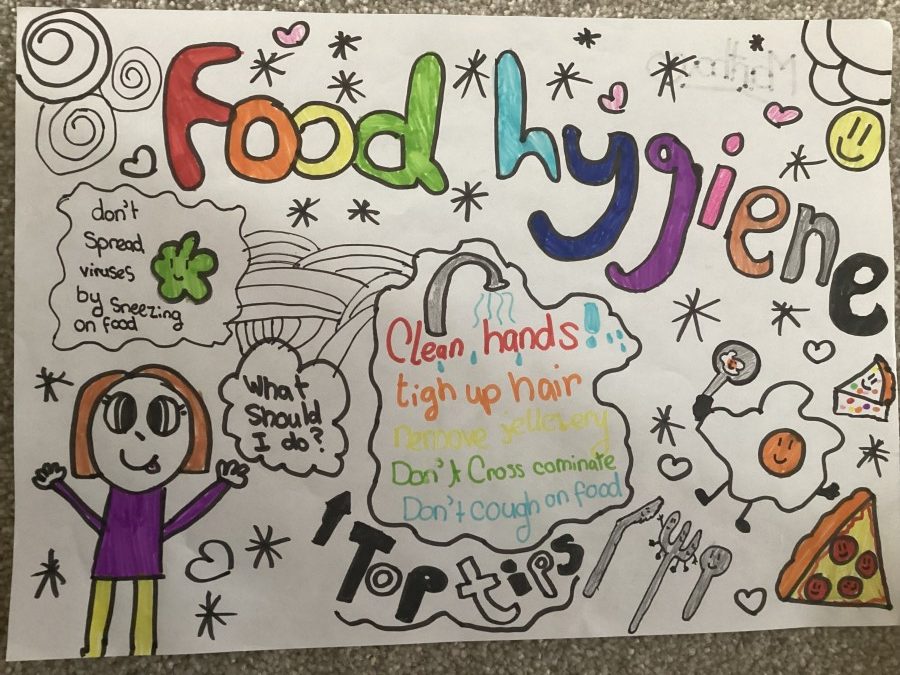 Food hygiene
don't
Spread
viruses
by Sneezing
on food
What
Should
I do?
Clean hands!
tigh up hair
Remove jellevery
Don't Cross cominate
Don't cough on food
Top tips